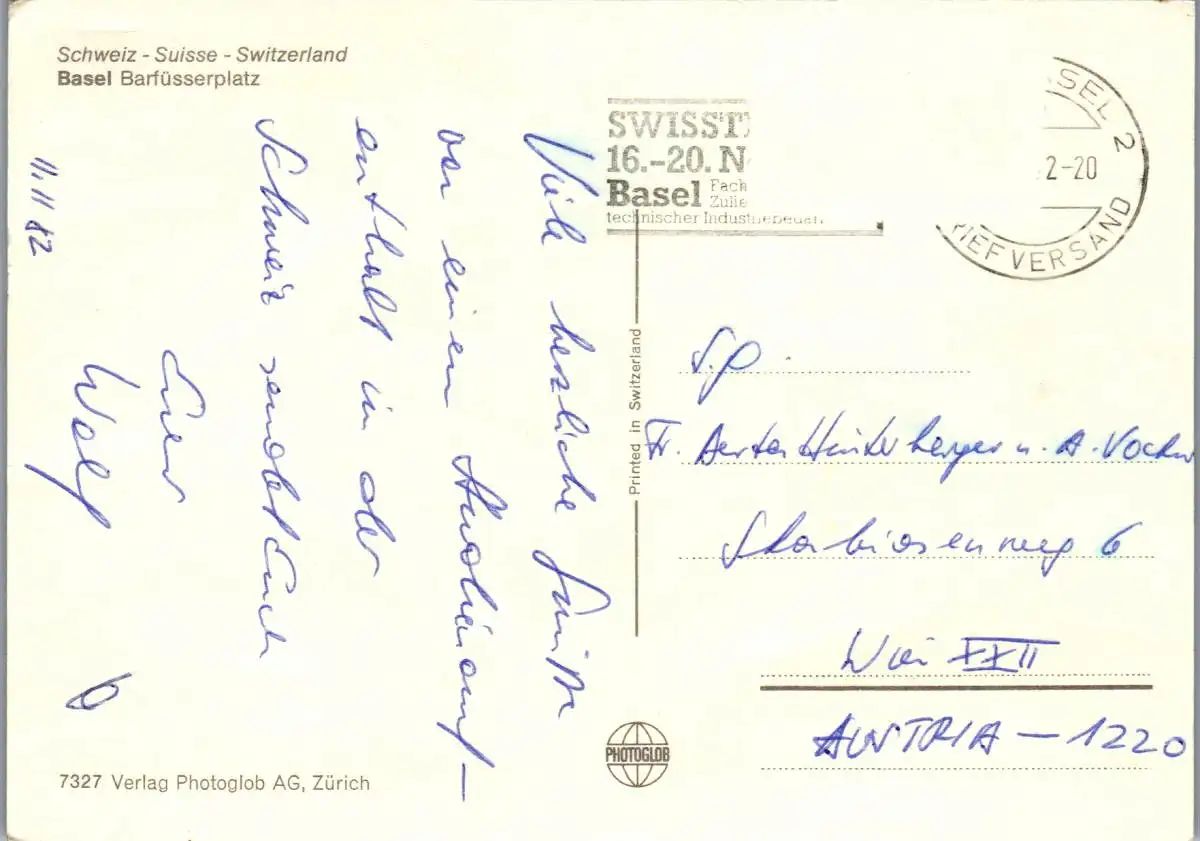 Schweiz - Suisse - Switzerland
Basel Barfüsserplatz
11.11 82
Viele herzliche Grüße
von einem Studienauf-
enthalt in der
Schweiz sendet Euch
Euer
Wolf
7327 Verlag Photoglob AG, Zürich
Printed in Switzerland
PHOTOGLOB
SWISST
16.-20. N
Basel Fach
Zulie
technischer Industriebedarf
BASEL 2
2-20
BRIEFVERSAND
S.g.
Fr. Hinterberger u. A.
Skabiosenweg 6
Wien XXII
AUSTRIA - 1220